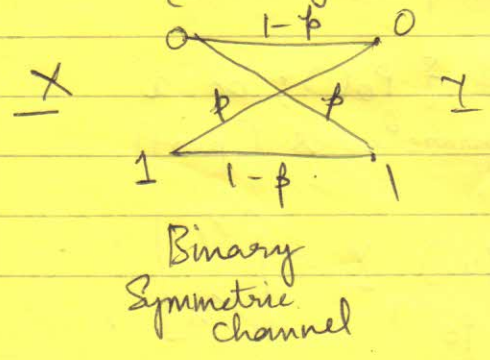 0 1-p 0
X p p Y
1 1-p 1
Binary
Symmetric
channel